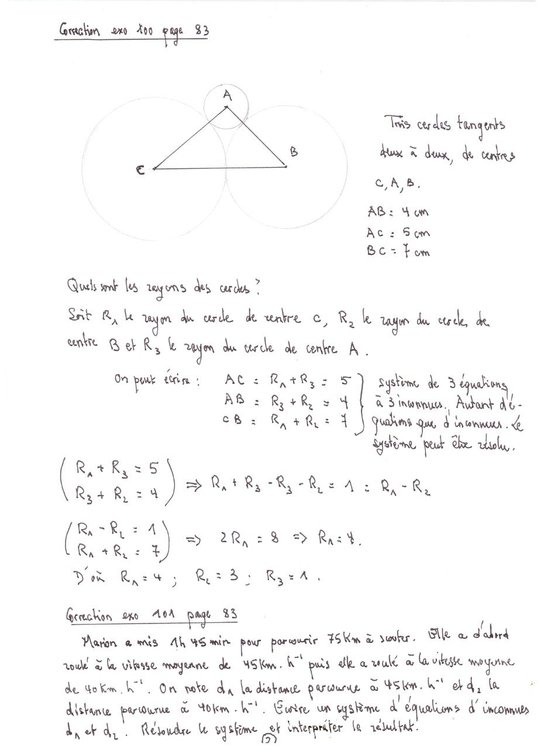 Correction exo 100 page 83
A
B
C
Trois cercles tangents
deux à deux, de centres
C, A, B.
AB = 4 cm
AC = 5 cm
BC = 7 cm
Quels sont les rayons des cercles ?
Soit R₁ le rayon du cercle de centre C, R₂ le rayon du cercle de
centre B et R₃ le rayon du cercle de centre A.
On peut écrire : AC = R₁ + R₃ = 5
AB = R₃ + R₂ = 4
CB = R₁ + R₂ = 7
système de 3 équations
à 3 inconnues. Autant d'é-
quations que d'inconnues. Le
système peut être résolu.
R₁ + R₃ = 5
R₃ + R₂ = 4
⇒ R₁ + R₃ - R₃ - R₂ = 1 = R₁ - R₂
R₁ - R₂ = 1
R₁ + R₂ = 7
⇒ 2R₁ = 8 ⇒ R₁ = 4.
D'où R₁ = 4 ; R₂ = 3 ; R₃ = 1.
Correction exo 101 page 83
Marion a mis 1h 45 min pour parcourir 75 Km à scooter. Elle a d'abord
roulé à la vitesse moyenne de 45 Km. h⁻¹ puis elle a roulé à la vitesse moyenne
de 40 Km. h⁻¹. On note d₁ la distance parcourue à 45 Km. h⁻¹ et d₂ la
distance parcourue à 40 Km. h⁻¹. Écrire un système d'équations d'inconnues
d₁ et d₂. Résoudre le système et interpréter le résultat.
2